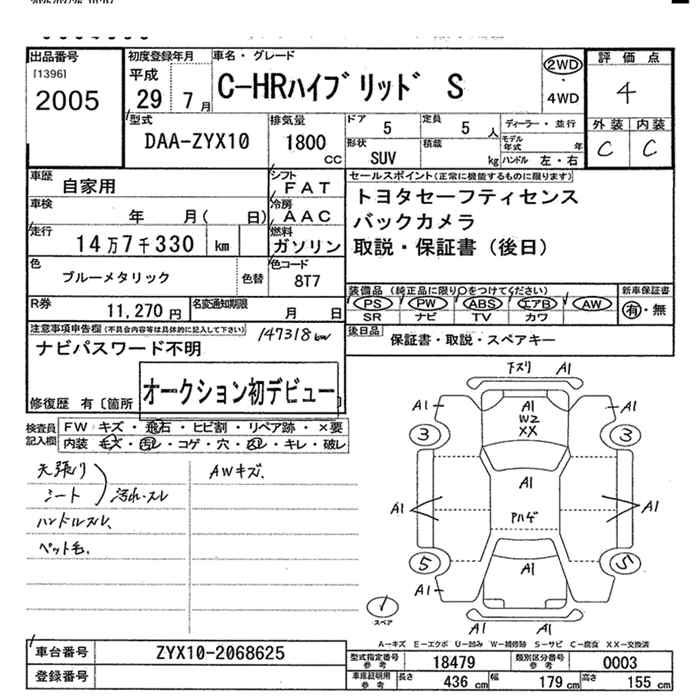 出品番号
[1396]
2005
初度登録年月
平成
29 7月
車名・グレード
C-HRハイブリッド S
2WD
・
4WD
評価点
4
外装 内装
C C
型式
DAA-ZYX10
排気量
1800
CC
ドア
5
定員
5人
ディーラー・並行
形状
SUV
積載
kg
モデル年式
年
ハンドル 左・右
車歴
自家用
シフト
FAT
車検
年 月( 日)
冷房
AAC
走行
14万7千330 km
燃料
ガソリン
色
ブルーメタリック
色替
色コード
8T7
R券
11,270円
名変通知期限
月 日
セールスポイント(正常に機能するものに限ります)
トヨタセーフティセンス
バックカメラ
取説・保証書(後日)
装備品(純正品に限り○をつけてください)
新車保証書
PS PW ABS エアB AW
SR ナビ TV カワ
有・無
後日品
保証書・取説・スペアキー
注意事項申告欄(不具合内容等は具体的に記入して下さい)
147318km
ナビパスワード不明
オークション初デビュー
修復歴 有〔箇所 〕
検査員記入欄
FW キズ・飛石・ヒビ割・リペア跡・×要
内装 キズ・汚れ・コゲ・穴・スレ・キレ・破レ
天張り
シート
汚れ・スレ
ハンドルスレ、
ペット毛.
AWキズ.
下ズリ A1
A1 A1 A1
W2
XX
3 3
A1
A1 A1
アハゲ
5 5
A1 A1
A1 A1
スペア
A―キズ E―エクボ U―凹み W―補修跡 S―サビ C―腐食 XX―交換済
車台番号
ZYX10-2068625
登録番号
型式指定番号
参考
18479
類別区分番号
参考
0003
車庫証明用
参考
長さ
436 cm
幅
179 cm
高さ
155 cm